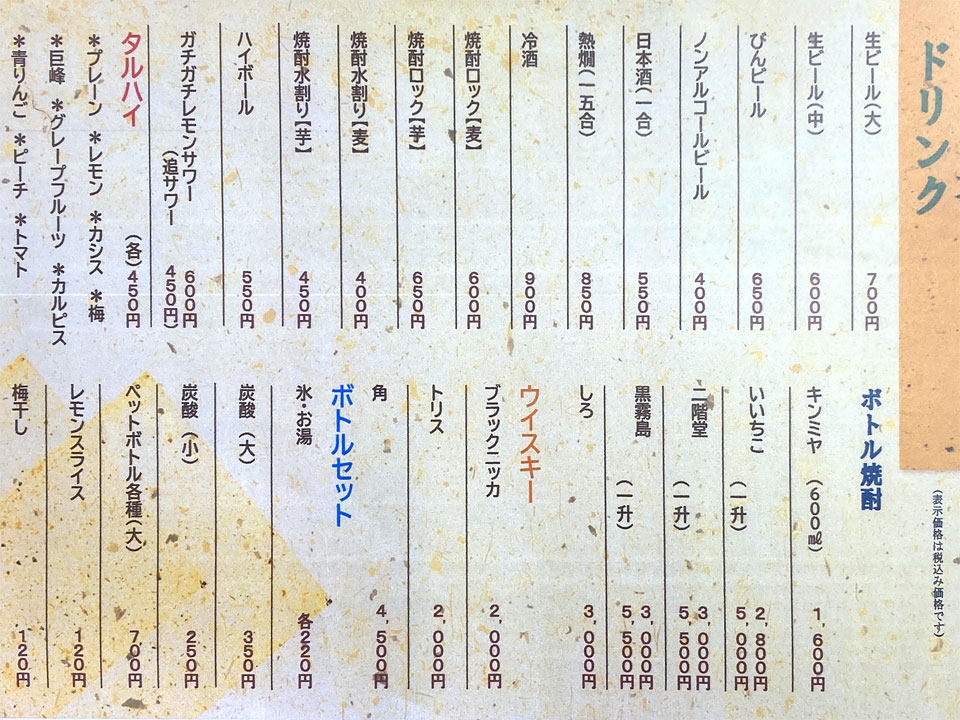 ドリンク
(表示価格は税込み価格です)
生ビール(大) 700円
生ビール(中) 600円
びんビール 650円
ノンアルコールビール 400円
日本酒(一合) 550円
熱燗(一五合) 850円
冷酒 900円
焼酎ロック【麦】 600円
焼酎ロック【芋】 650円
焼酎水割り【麦】 400円
焼酎水割り【芋】 450円
ハイボール 550円
ガチガチレモンサワー 600円
(追サワー 450円)
タルハイ (各)450円
*プレーン *レモン *カシス *梅
*巨峰 *グレープフルーツ *カルピス
*青りんご *ピーチ *トマト
ボトル焼酎
キンミヤ (600㎖) 1,600円
いいちこ 2,800円
(一升) 5,000円
二階堂 3,000円
(一升) 5,500円
黒霧島 3,000円
(一升) 5,500円
しろ 3,000円
ウイスキー
ブラックニッカ 2,000円
トリス 2,000円
角 4,500円
ボトルセット
氷・お湯 各220円
炭酸(大) 350円
炭酸(小) 250円
ペットボトル各種(大) 700円
レモンスライス 120円
梅干し 120円